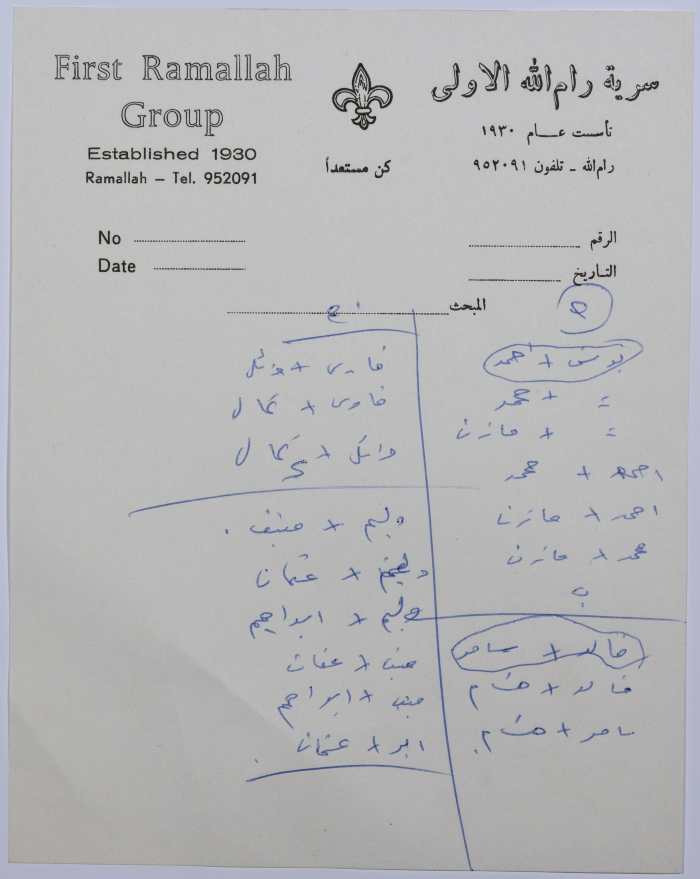 First Ramallah
Group
Established 1930
Ramallah – Tel. 952091
كن مستعداً
سرية رام الله الاولى
تأسست عــام ١٩٣٠
رام الله - تلفون ٩٥٢٠٩١
No
Date
الرقم
التاريخ
المبحث
يونس + احمد
" + محمد
" + مازن
احمد + محمد
احمد + مازن
محمد + مازن
ب
خالد + سامر
خالد + هشام
سامر + هشام
فادي + وائل
فادي + كمال
وائل + كمال
وليم + منيف
وليم + عثمان
وليم + ابراهيم
منيف + عثمان
منيف + ابراهيم
ابر + عثمان